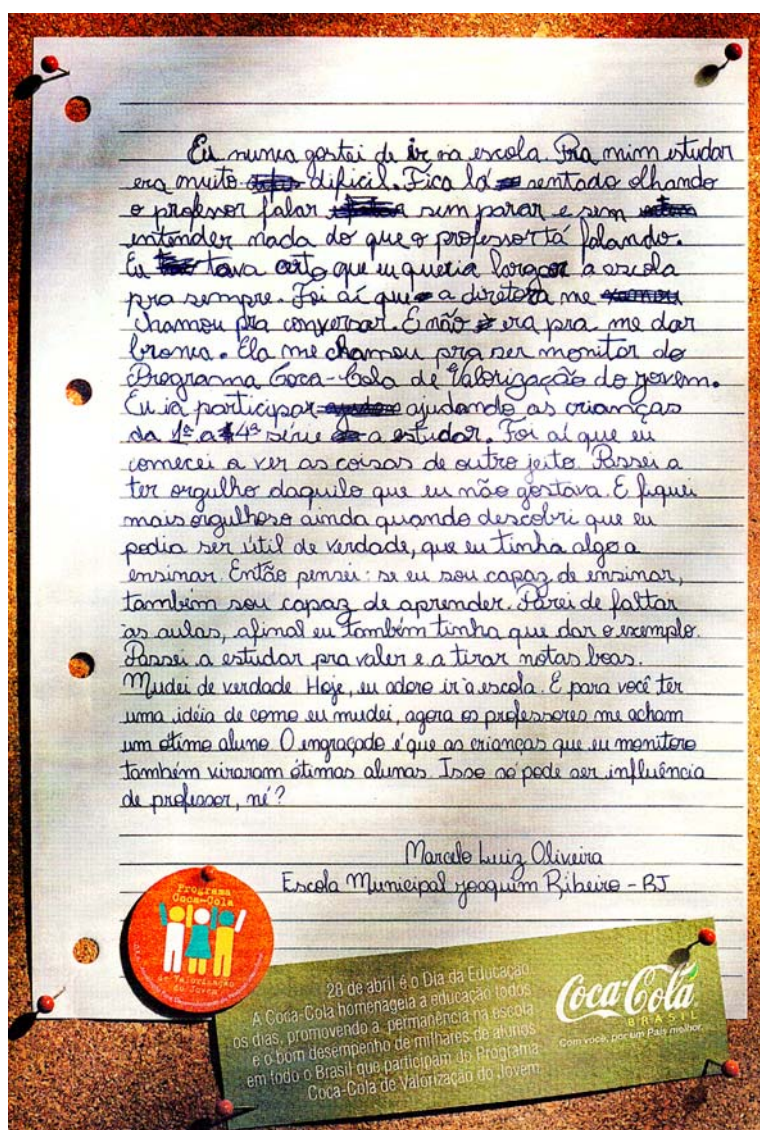 Eu nunca gostei de ir na escola. Pra mim estudar
era muito difícil. Fica lá sentado olhando
o professor falar sem parar e sem
entender nada do que o professor tá falando.
Eu tava certo que eu queria largar a escola
pra sempre. Foi aí que a diretora me
chamou pra conversar. E não era pra me dar
bronca. Ela me chamou pra ser monitor do
Programa Coca-Cola de Valorização do jovem.
Eu ia participar ajudando as crianças
da 1ª a 4ª série a estudar. Foi aí que eu
comecei a ver as coisas de outro jeito. Passei a
ter orgulho daquilo que eu não gostava. E fiquei
mais orgulhoso ainda quando descobri que eu
podia ser útil de verdade, que eu tinha algo a
ensinar. Então pensei: se eu sou capaz de ensinar,
também sou capaz de aprender. Parei de faltar
às aulas, afinal eu também tinha que dar o exemplo.
Passei a estudar pra valer e a tirar notas boas.
Mudei de verdade. Hoje, eu adoro ir à escola. E para você ter
uma idéia de como eu mudei, agora os professores me acham
um ótimo aluno. O engraçado é que as crianças que eu monitoro
também viraram ótimas alunas. Isso só pode ser influência
de professor, né?
Marcelo Luiz Oliveira
Escola Municipal Joaquim Ribeiro - RJ
Programa
Coca-Cola
de Valorização
do Jovem
28 de abril é o Dia da Educação.
A Coca-Cola homenageia a educação todos
os dias, promovendo a permanência na escola
e o bom desempenho de milhares de alunos
em todo o Brasil que participam do Programa
Coca-Cola de Valorização do Jovem.
Coca-Cola
BRASIL
Com você, por um País melhor.